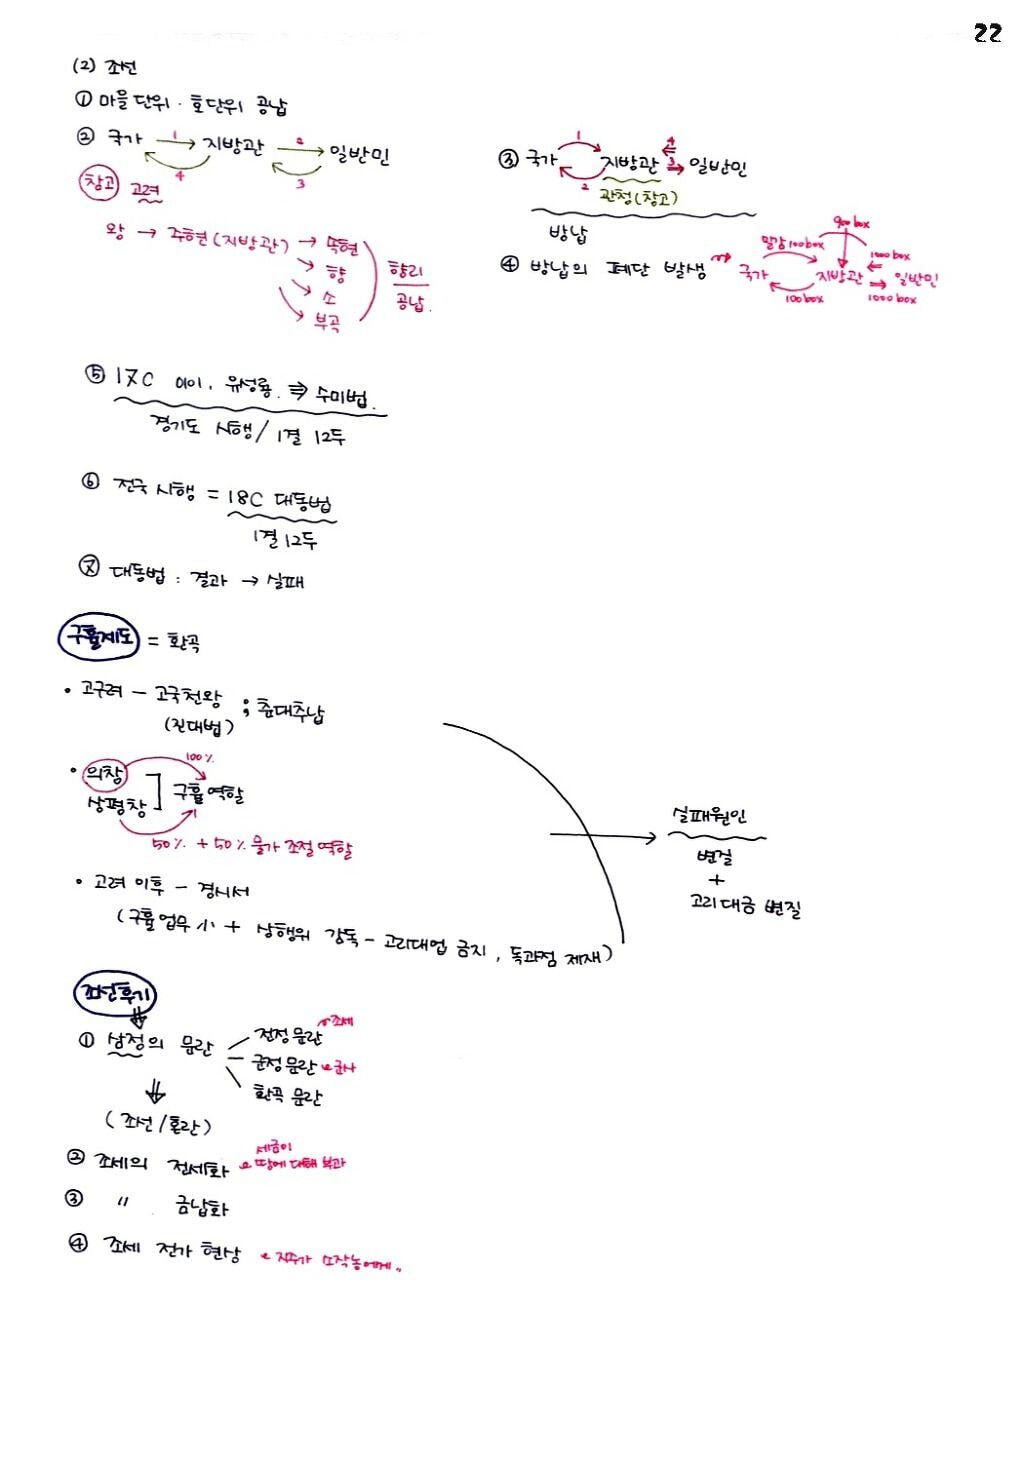 22
(2) 조선
① 마을단위 · 호단위 공납
② 국가 1 지방관 2 일반민
4 3
참고 고려
왕 → 주현(지방관) → 속현
→ 향
→ 소
→ 부곡
향리
공납.
③ 국가 1 지방관 4 3 일반민
2 관청(창고)
방납
④ 방납의 폐단 발생
900 box
말감 100 box 1000 box
국가 지방관 일반민
100 box 1000 box
⑤ 17C 이이, 유성룡. ⇒ 수미법.
경기도 시행 / 1결 12두
⑥ 전국 시행 = 18C 대동법
1결 12두
⑦ 대동법 : 결과 → 실패
구휼제도 = 환곡
• 고구려 - 고국천왕 ; 춘대추납
(진대법)
• 의창 100%
상평창 ] 구휼역할
50% + 50% 물가 조절 역할
실패원인
변질
+
고리대금 변질
• 고려 이후 - 경시서
(구휼 업무 小 + 상행위 감독 - 고리대업 금지, 독과점 제재)
조선후기
① 삼정의 문란 전정 문란 조세
군정 문란 군사
환곡 문란
(조선/혼란)
② 조세의 전세화 세금이
땅에 대해 부과
③ 〃 금납화
④ 조세 전가 현상 지주가 소작농에게..